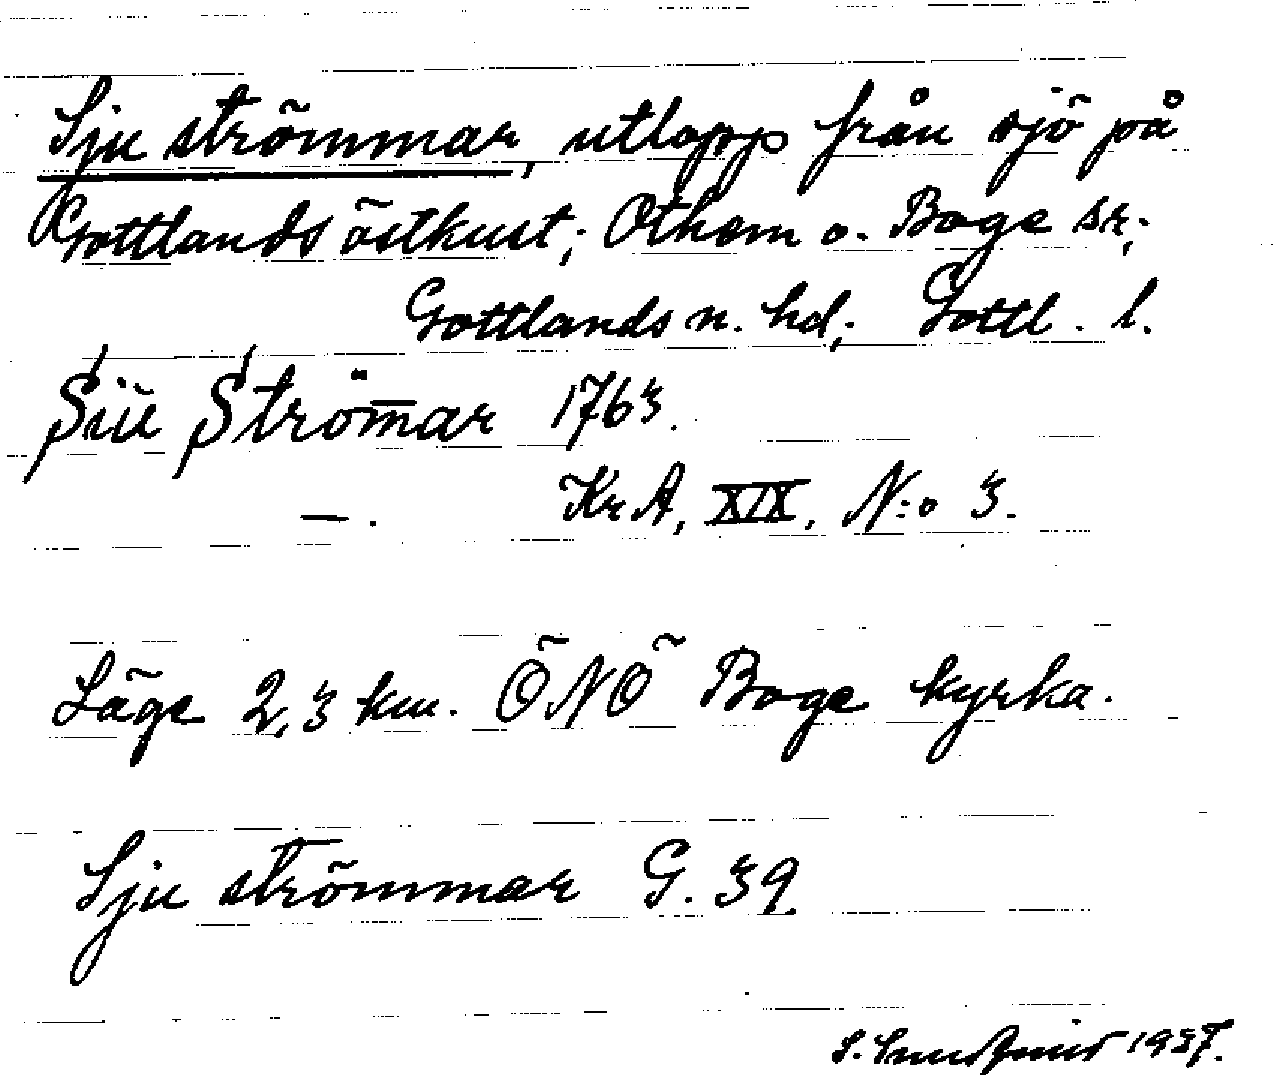 Sju strömmar, utlopp från sjö på
Gottlands östkust; Othem o. Boge sr;
Gottlands n. hd; Gottl. l.
Siü Strömar 1763.
—. KrA, XIX, N:o 3.
Läge 2,3 km. ÖNÖ Boge kyrka.
Sju strömmar G. 39.
S. 1937.